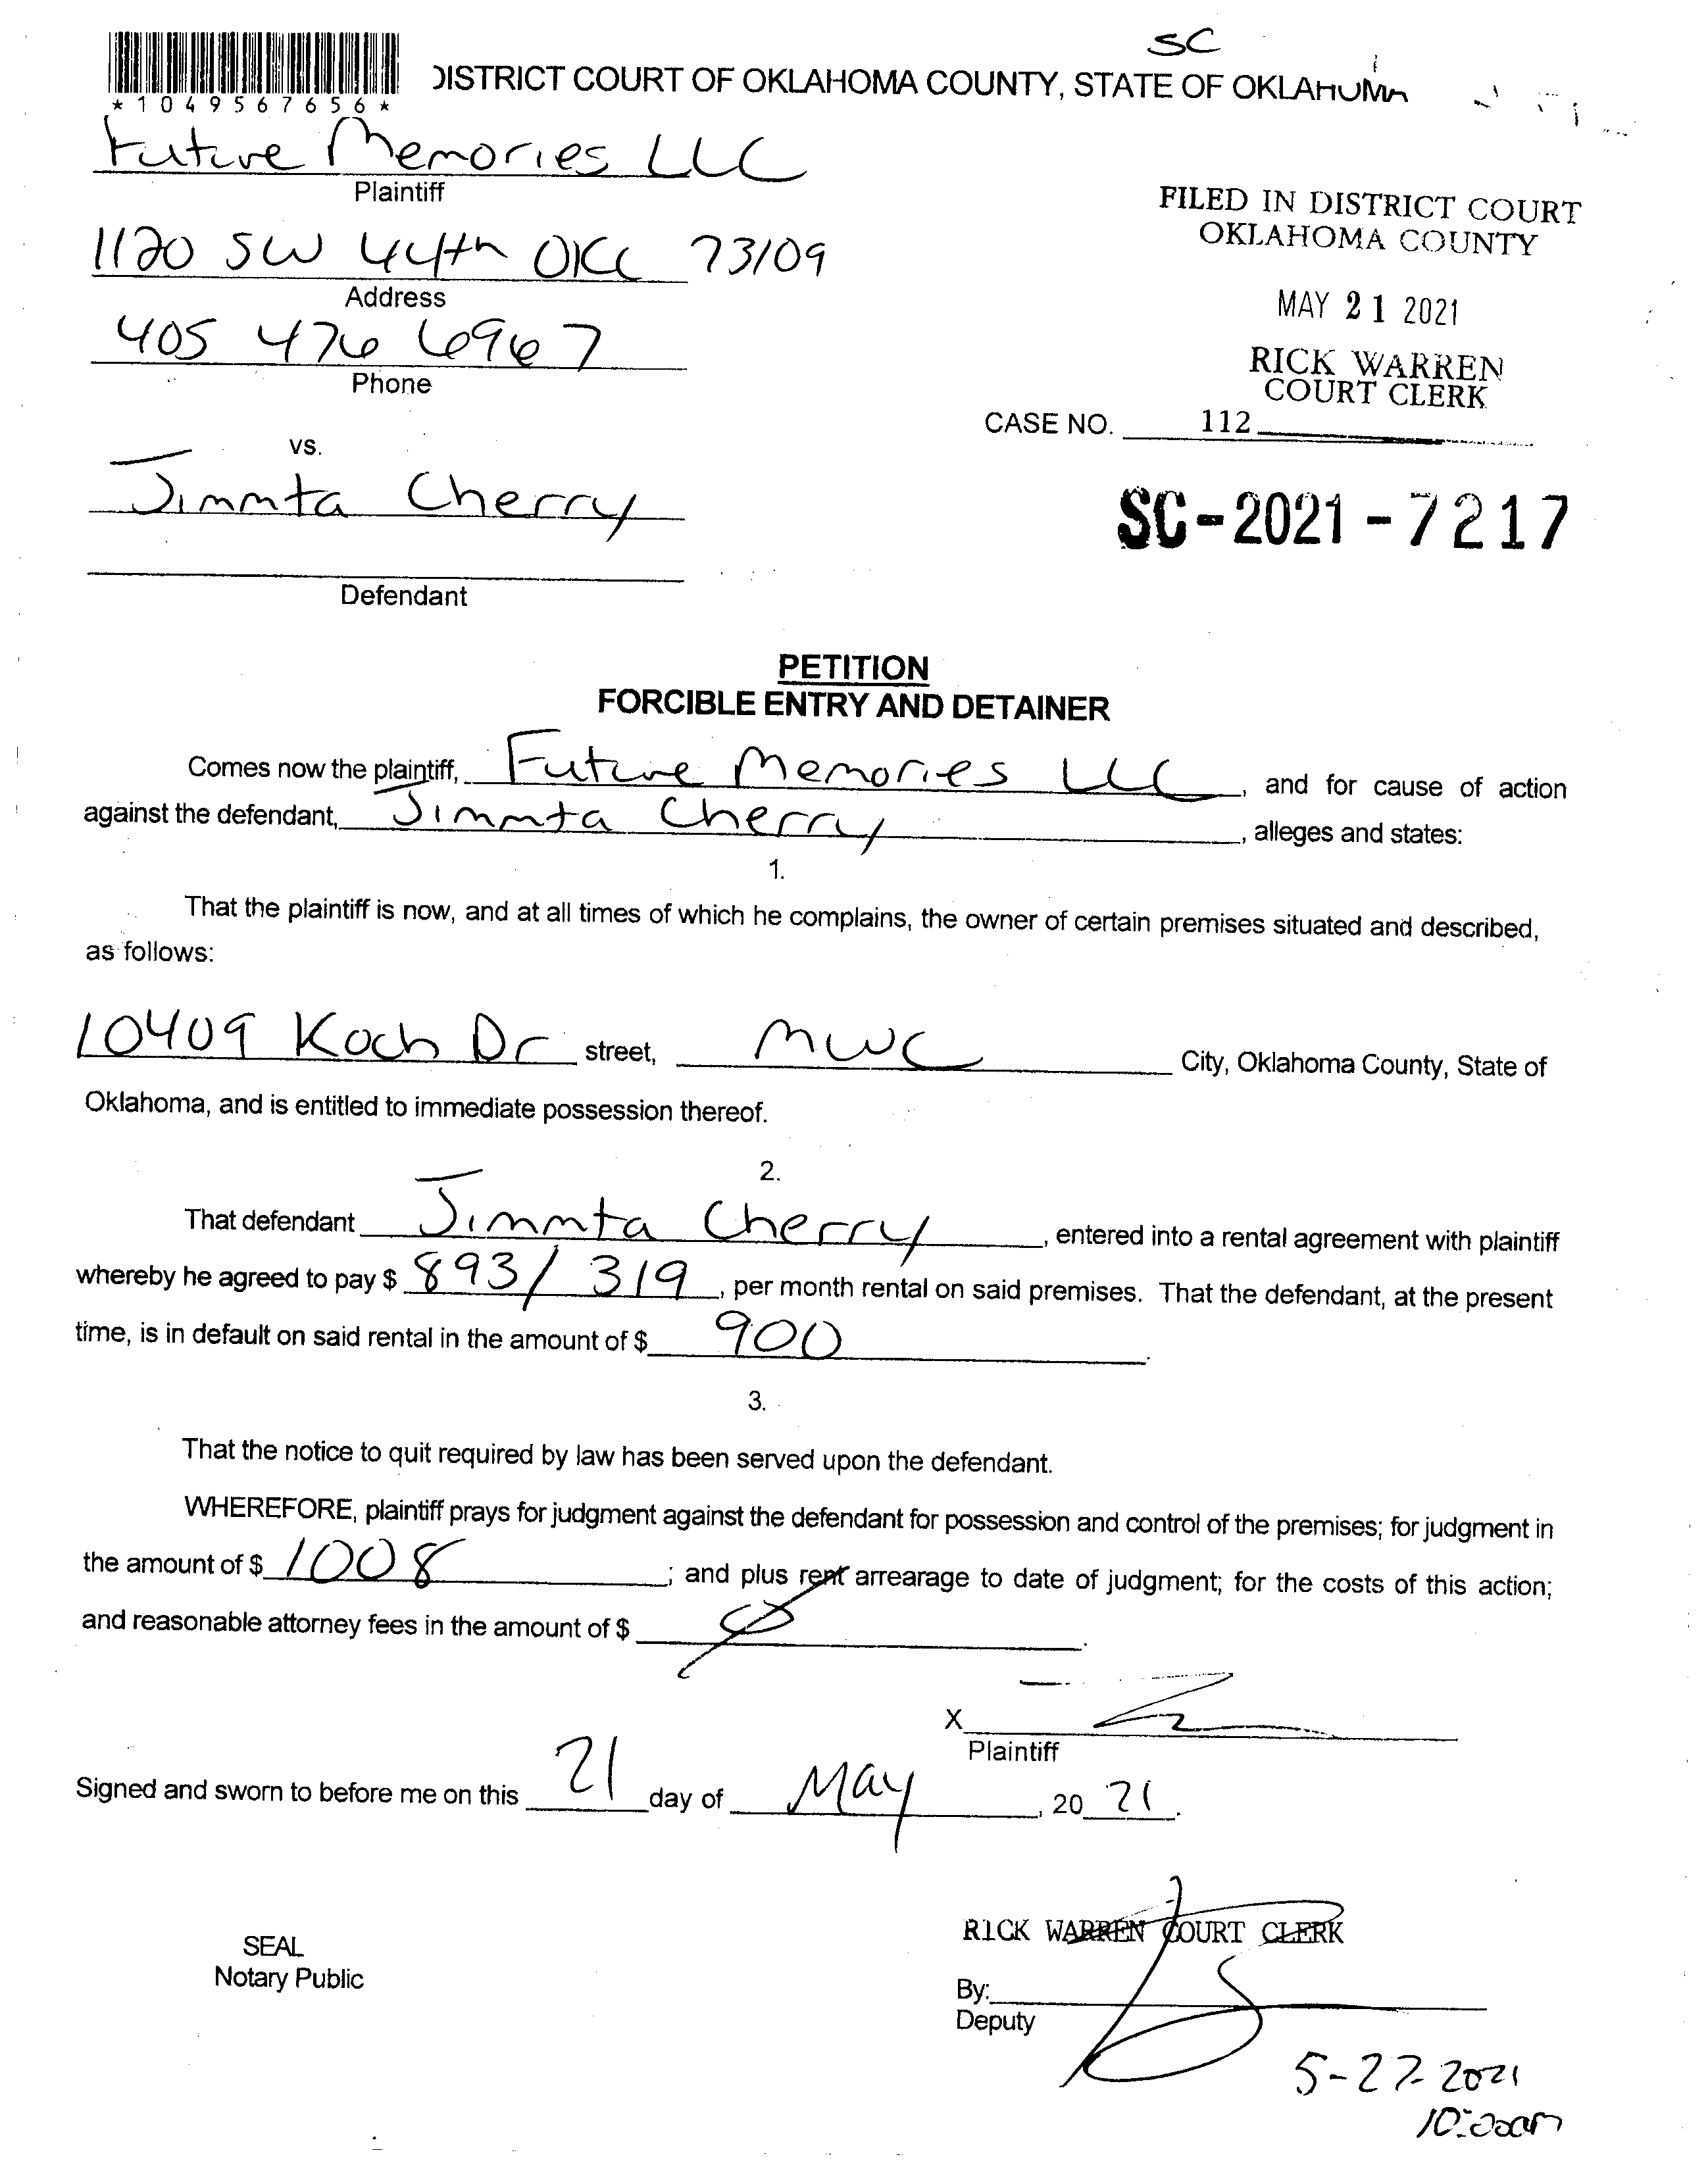 SC
DISTRICT COURT OF OKLAHOMA COUNTY, STATE OF OKLAHOMA
*1049567656*
Future Memories LLC
Plaintiff
1120 SW 44th OKC 73109
Address
405 476 6967
Phone
FILED IN DISTRICT COURT
OKLAHOMA COUNTY
MAY 21 2021
RICK WARREN
COURT CLERK
CASE NO. 112
vs.
Jimmta Cherry
SC-2021-7217
Defendant
PETITION
FORCIBLE ENTRY AND DETAINER
Comes now the plaintiff, Future Memories LLC, and for cause of action
against the defendant, Jimmta Cherry, alleges and states:
1.
That the plaintiff is now, and at all times of which he complains, the owner of certain premises situated and described,
as follows:
10409 Koch Dr street, MWC City, Oklahoma County, State of
Oklahoma, and is entitled to immediate possession thereof.
2.
That defendant Jimmta Cherry, entered into a rental agreement with plaintiff
whereby he agreed to pay $ 893/ 319, per month rental on said premises. That the defendant, at the present
time, is in default on said rental in the amount of $ 900.
3.
That the notice to quit required by law has been served upon the defendant.
WHEREFORE, plaintiff prays for judgment against the defendant for possession and control of the premises; for judgment in
the amount of $ 1008; and plus rent arrearage to date of judgment; for the costs of this action;
and reasonable attorney fees in the amount of $ Ø.
X
Plaintiff
Signed and sworn to before me on this 21 day of May, 20 21.
SEAL
Notary Public
RICK WARREN COURT CLERK
By:
Deputy
5-27-2021
10:00am